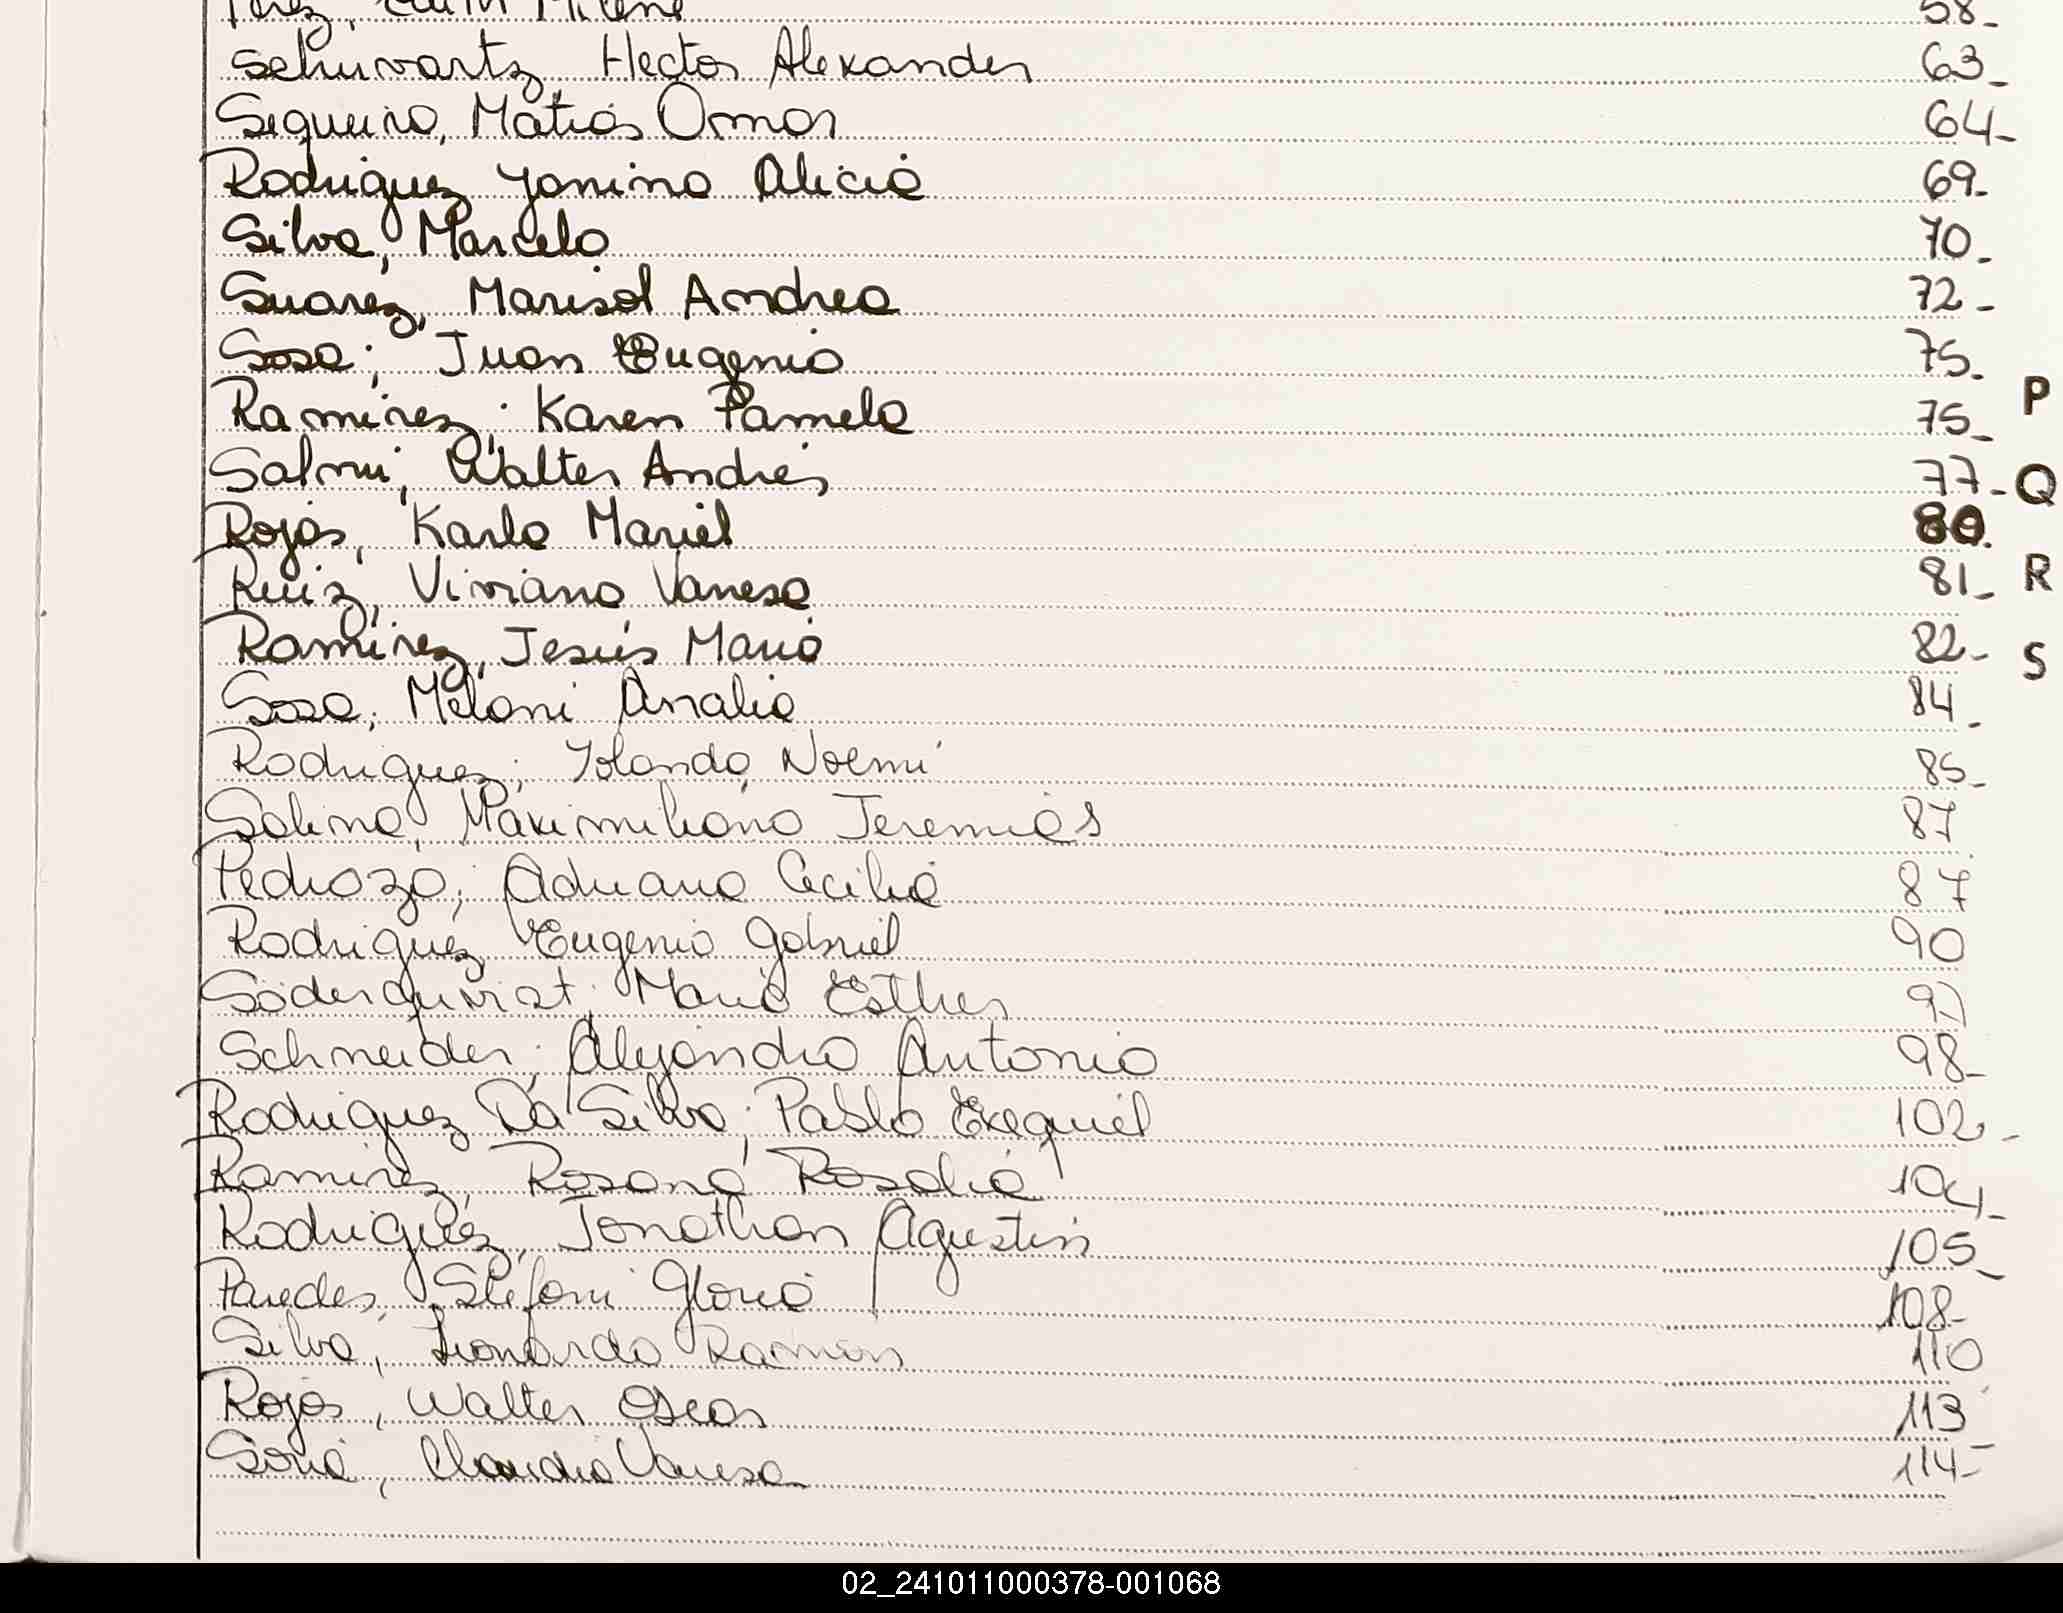 Perez, Edith Milene 58-
Schuvartz Hector Alexander 63-
Sequeira, Matias Omar 64-
Rodriguez Yanina Alicia 69-
Silva, Marcelo 70-
Suarez, Marisol Andrea 72-
Sosa; Juan Eugenio 75-
Ramirez; Karen Pamela 75-
P
Salmi, Walter Andrés 77-
Q
Rojas, Karla Mariel 80.
Ruiz, Viviana Vanesa 81-
R
Ramirez, Jesús Maria 82-
S
Sosa; Melani Analia 84-
Rodriguez; Yolanda Noemi 85-
Salina, Maximiliano Jeremias 87
Pedrozo; Adriana Cecilia 87
Rodriguez Eugenio Gabriel 90
Söderquvist; Maria Esther
Schneider; Alejandro Antonio 98-
Rodriguez Da Silva; Pablo Exequiel 102-
Ramirez, Rosana Rosalia 104-
Rodriguez, Jonathan Agustin 105-
Paredes, Stefani Gloria 108-
Silva, Leonardo Ramon 110
Rojas, Walter Oscar 113
Soria, Claudia Vanesa 114-
02_241011000378-001068